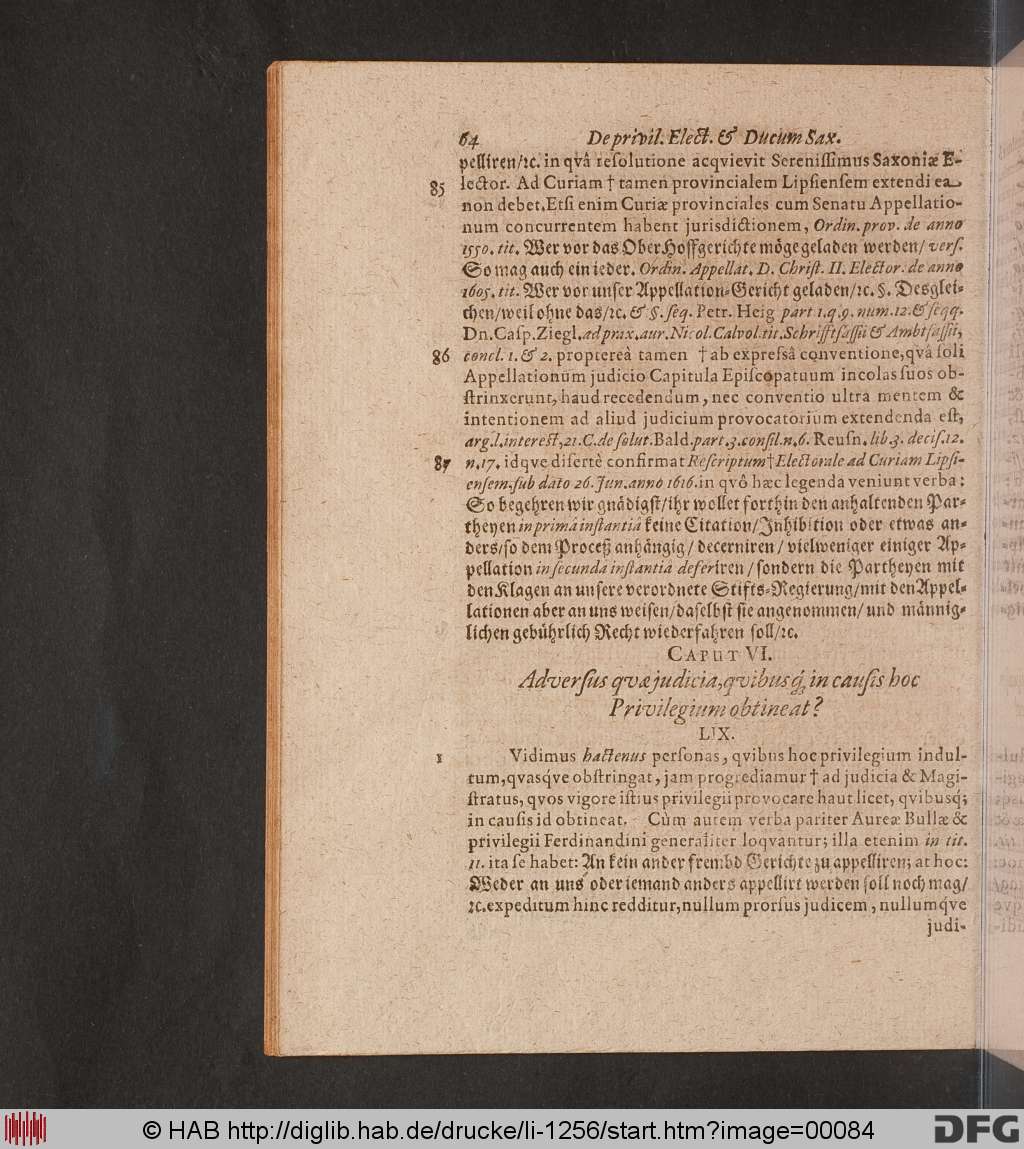 64 De privil. Elect. & Ducum Sax.
pelliren/ꝛc. in qvâ resolutione acqvievit Serenissimus Saxoniæ E-
85 lector. Ad Curiam † tamen provincialem Lipsiensem extendi ea
non debet. Etsi enim Curiæ provinciales cum Senatu Appellatio-
num concurrentem habent jurisdictionem, Ordin. prov. de anno
1550. tit. Wer vor das Ober Hoffgerichte möge geladen werden/ vers.
So mag auch ein ieder. Ordin. Appellat. D. Christ. II. Elector. de anno
1605. tit. Wer vor unser Appellation-Gericht geladen/ꝛc. §. Desglei-
chen/weil ohne das/ꝛc. & §. seq. Petr. Heig part 1. q. 9. num. 12. & seqq.
Dn. Casp. Ziegl. ad prax. aur. Nicol. Calvol. tit. Schrifftsassii & Ambtsassii,
86 concl. 1. & 2. propterea tamen † ab expressâ conventione, qvâ soli
Appellationum judicio Capitula Episcopatuum incolas suos ob-
strinxerunt, haud recedendum, nec conventio ultra mentem &
intentionem ad aliud judicium provocatorium extendenda est,
arg. l. interest, 21. C. de solut. Bald. part. 3. consil. n. 6. Reusn. lib. 3. decis. 12.
87 n. 17. idqve disertè confirmat Rescriptum † Electorale ad Curiam Lipsi-
ensem. sub dato 26. Jun. anno 1616. in qvô hæc legenda veniunt verba:
So begehren wir gnädigst/ihr wollet forthin den anhaltenden Par-
theyen in primâ instantiâ keine Citation/Inhibition oder etwas an-
ders/so dem Proceß anhängig/ decerniren/ vielweniger einiger Ap-
pellation in secunda instantia deferiren/ sondern die Partheyen mit
den Klagen an unsere verordnete Stifts-Regierung/mit den Appel-
lationen aber an uns weisen/daselbst sie angenommen/ und männig-
lichen gebührlich Recht wiederfahren soll/ꝛc.
CAPUT VI.
Adversus qvæ judicia, qvibusq́; in causis hoc
Privilegium obtineat?
LIX.
1 Vidimus hactenus personas, qvibus hoc privilegium indul-
tum, qvasq́ve obstringat, jam progrediamur † ad judicia & Magi-
stratus, qvos vigore istius privilegii provocare haut licet, qvibusq́;
in causis id obtineat. Cùm autem verba pariter Aureæ Bullæ &
privilegii Ferdinandini generaliter loqvantur; illa etenim in tit.
11. ita se habet: An kein ander frembd Gerichte zu appelliren; at hoc:
Weder an uns oder iemand anders appellirt werden soll noch mag/
ꝛc. expeditum hinc redditur, nullum prorsus judicem, nullumq́ve
judi-
© HAB http://diglib.hab.de/drucke/li-1256/start.htm?image=00084
DFG